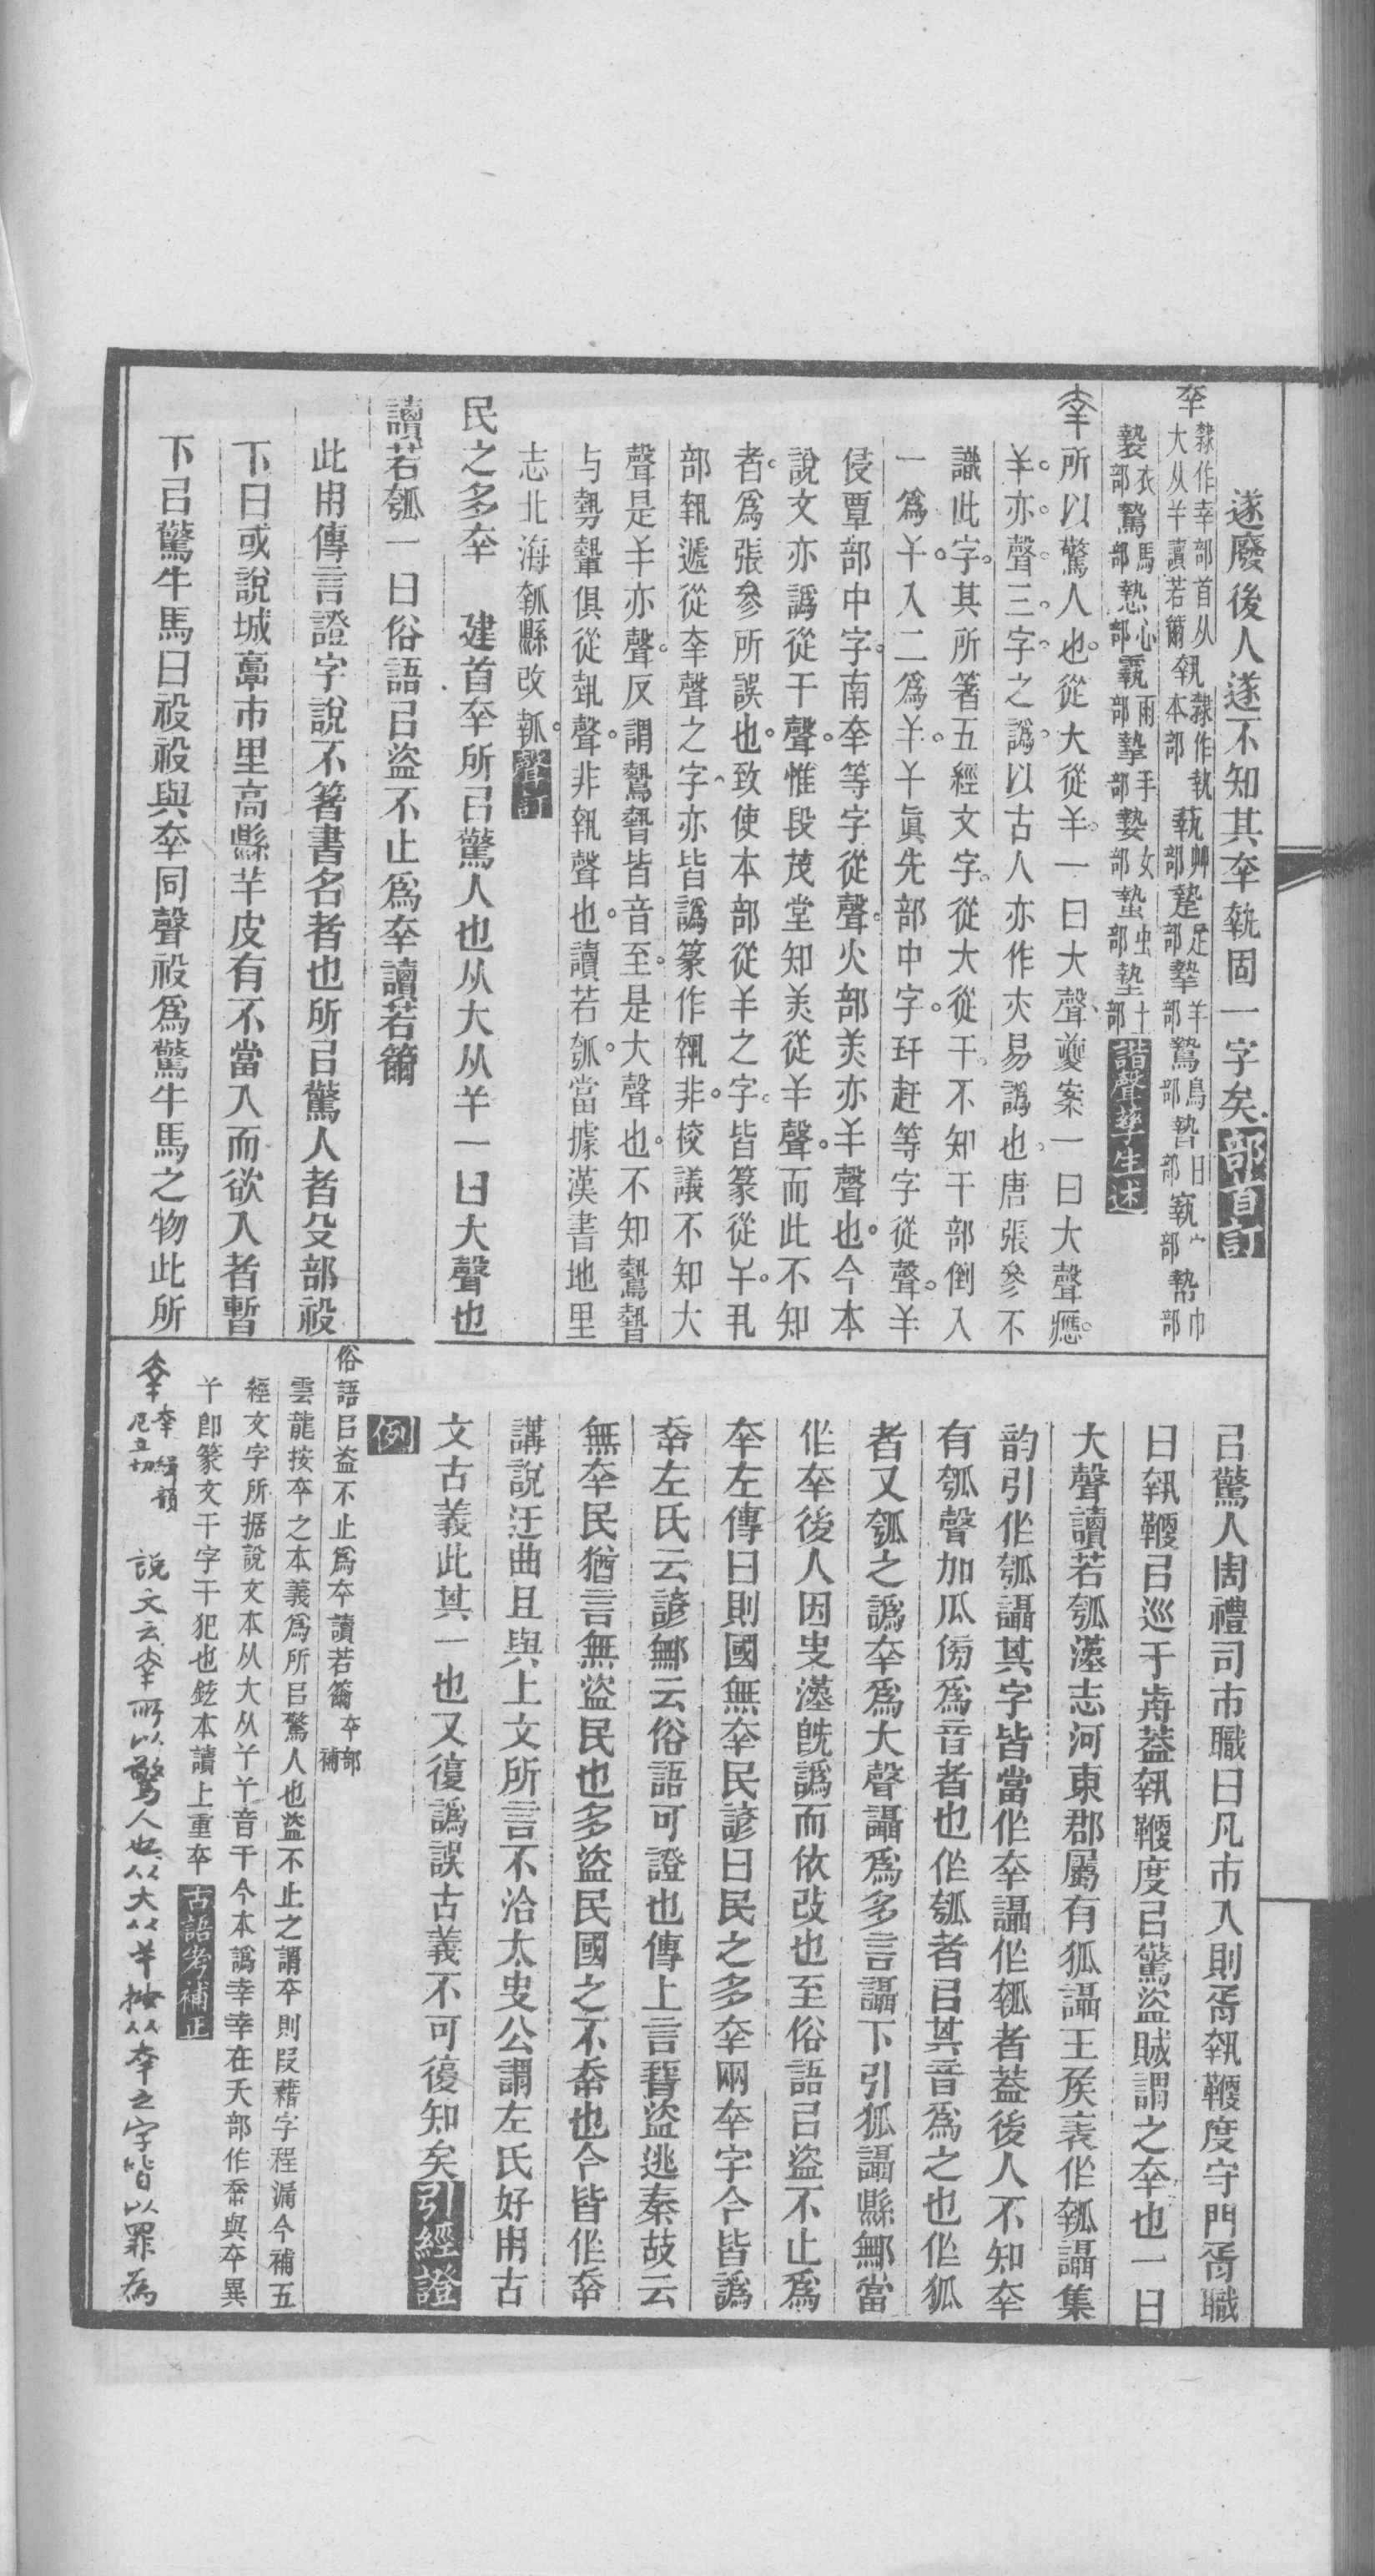 遂廢後人遂不知其㚔執固一字矣部首訂
㚔隸作幸部首从大从𢆉讀若籋執隸作執本部蓻艸部蟄足部摯羊部鷙鳥部暬日部㝪宀部㡇巾部
褺衣部騺馬部慹心部霵雨部摯手部㜼女部蟄虫部墊土部諧聲孳生述
㚔所以驚人也從大從𢆉一曰大聲夔案一曰大聲𤻮
𢆉亦聲三字之譌以古人亦作夾易譌也唐張參不
識此字其所箸五經文字從大從干不知干部倒入
一爲𢆉入二爲𢆉𢆉眞先部中字玕赶等字從聲𢆉
侵覃部中字南㚔等字從聲火部羙亦𢆉聲也今本
說文亦譌從干聲惟段茂堂知羙從𢆉聲而此不知
者爲張參所誤也致使本部從𢆉之字皆篆從𢆉丮
部執遞從㚔聲之字亦皆譌篆作執非校議不知大
聲是𢆉亦聲反謂鷙暬皆音至是大聲也不知鷙暬
与勢㙯俱從埶聲非執聲也讀若瓠當據漢書地里
志北海瓡縣改瓡聲訂
民之多㚔　建首㚔所㠯驚人也从大从𢆉一曰大聲也
讀若瓠一曰俗語㠯盜不止爲㚔讀若籋
此用傳言證字說不箸書名者也所㠯驚人者殳部祋
下曰或說城𩫖市里高縣羊皮有不當入而欲入者暫
下㠯驚牛馬曰祋祋與㚔同聲祋爲驚牛馬之物此所
㠯驚人周禮司市職曰凡市入則胥執鞭度守門胥職
曰執鞭㠯巡于歬葢執鞭度㠯驚盜賊謂之㚔也一曰
大聲讀若瓠漢志河東郡屬有狐讘王矦表作瓡讘集
韵引作瓠讘其字皆當作㚔讘作瓡者葢後人不知㚔
有瓠聲加瓜傍爲音者也作瓠者㠯其音爲之也作狐
者又瓠之譌㚔爲大聲讘爲多言讘下引狐讘縣鄦當
作㚔後人因史漢旣譌而依改也至俗語㠯盜不止爲
㚔左傳曰則國無㚔民諺曰民之多㚔兩㚔字今皆譌
㚔左氏云諺鄦云俗語可證也傳上言晉盜逃秦故云
無㚔民猶言無盜民也多盜民國之不㚔也今皆作㚔
講說迂曲且與上文所言不洽太史公謂左氏好用古
文古義此其一也又復譌誤古義不可復知矣引經證
例
俗語㠯盜不止爲㚔讀若籋㚔部補
雲龍按㚔之本義爲所㠯驚人也盜不止之謂㚔則叚藉字程漏今補五
經文字所据說文本从大从𢆉𢆉音干今本譌幸幸在夭部作㚔與㚔異
𢆉卽篆文干字干犯也鉉本讀上重㚔古語考補正
㚔㚔緝韻尼立切　說文云㚔所以驚人也从大从𢆉按从㚔之字皆以罪爲